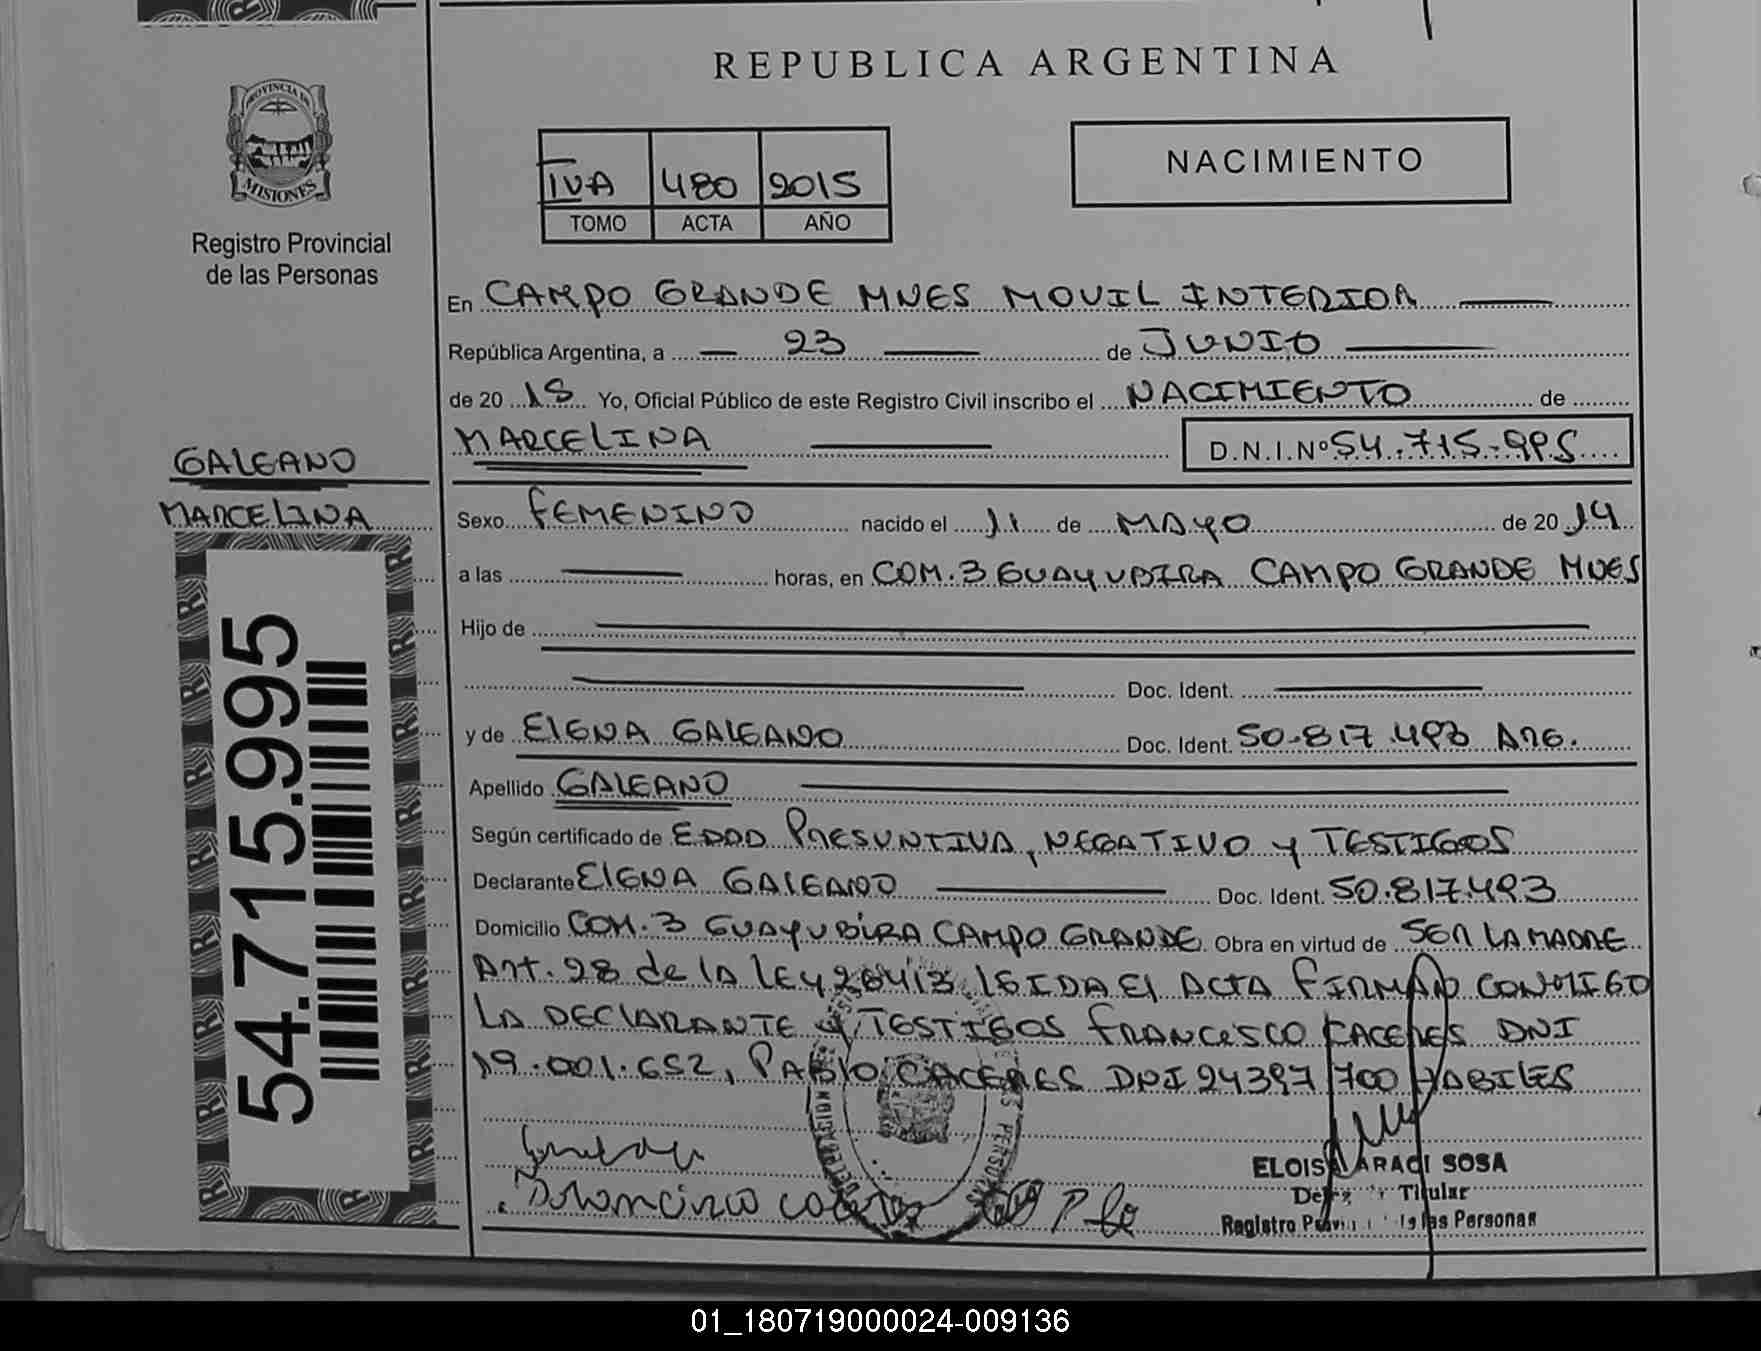 REPUBLICA ARGENTINA
PROVINCIA DE
MISIONES
Registro Provincial
de las Personas
IVA 480 2015
TOMO ACTA AÑO
NACIMIENTO
En CAMPO GRANDE MNES MOVIL INTERIOR
República Argentina, a 23 de JUNIO
de 20 15 Yo, Oficial Público de este Registro Civil inscribo el NACIMIENTO de
MARCELINA D.N.I.Nº 54.715.995
GALEANO
MARCELINA
Sexo FEMENINO nacido el 11 de MAYO de 20 14
a las horas, en COM. 3 GUAYUBIRA CAMPO GRANDE MNES
Hijo de
Doc. Ident.
y de ElENA GALEANO Doc. Ident. 50.817.493 ARG.
Apellido GALEANO
Según certificado de EDAD PRESUNTIVA, NEGATIVO y TESTIGOS
Declarante ElENA GALEANO Doc. Ident. 50.817.493
Domicilio COM. 3 GUAYUBIRA CAMPO GRANDE Obra en virtud de SER LA MADRE
ART. 28 de lA lEY 26413. lEIDA El ACTA FIRMAN CONMIGO
LA DEClARANTE y TESTIGOS FRANCISCO CACERES DNI
19.001.652, PABlO CACERES DNI 24397700 HABILES
54.715.995
ELOISA ARACI SOSA
Titular
Registro las Personas
01_180719000024-009136